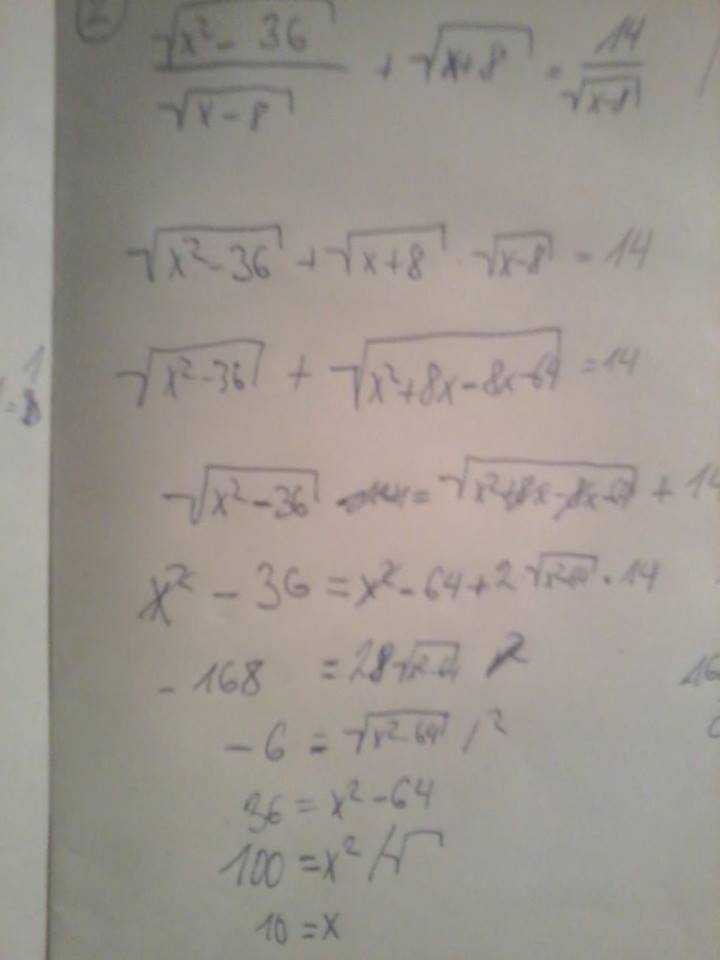 2
√(x²-36) / √(x-8) + √(x+8) = 14 / √(x-8) /
√(x²-36) + √(x+8) · √(x-8) = 14
√(x²-36) + √(x²+8x-8x-64) = 14
√(x²-36) = √(x²+8x-8x-64) + 14
x² - 36 = x² - 64 + 2√(x²-64) · 14
-168 = 28√(x²-64)
-6 = √(x²-64) /²
36 = x² - 64
100 = x² /√
10 = x